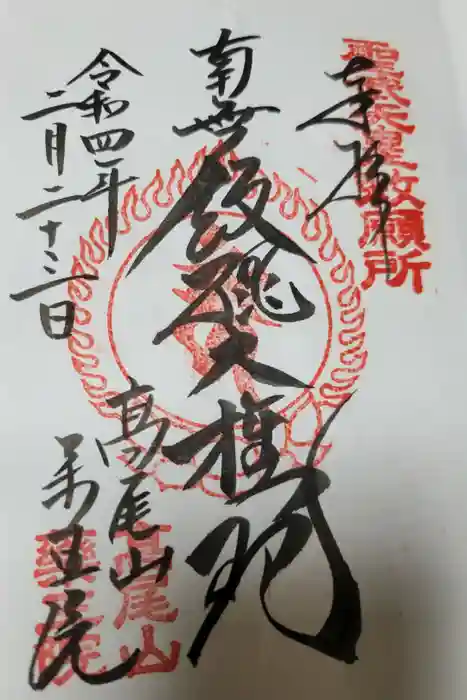 奉拝
聖武天皇敕願所
南無飯縄大権現
令和四年
二月二十三日
高尾山
薬王院
高尾山
薬王院